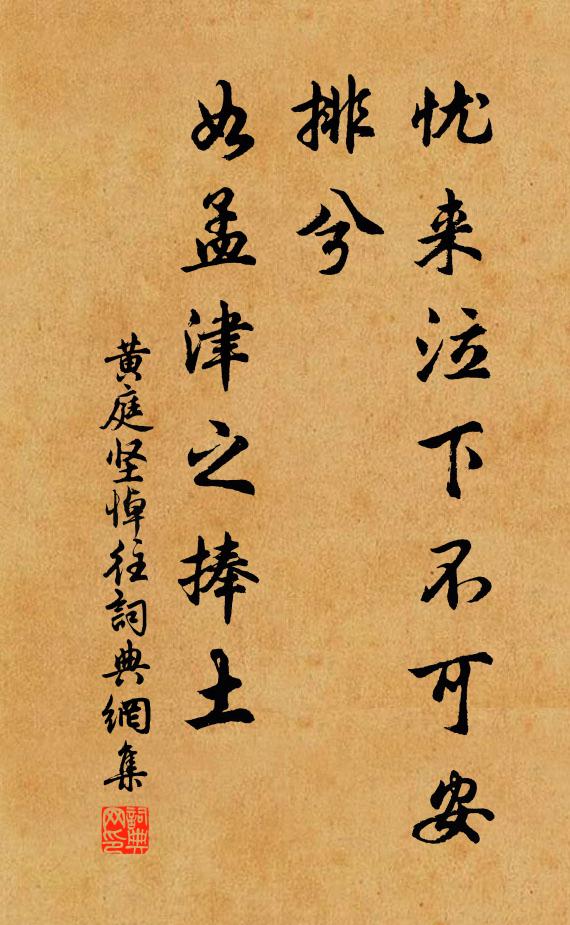 忧来泣下不可安
排兮
如孟津之捧土
黄庭坚悼往词典網集
詞典网印